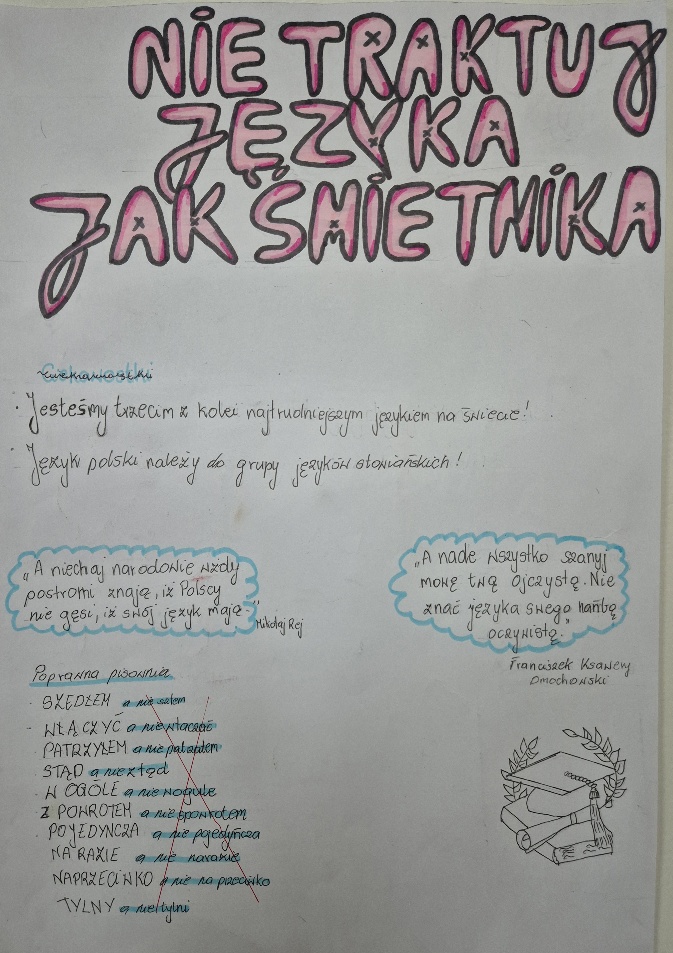 NIE TRAKTUJ
JĘZYKA
JAK ŚMIETNIKA
Ciekawostki
· Jesteśmy trzecim z kolei najtrudniejszym językiem na świecie!
· Język polski należy do grupy języków słowiańskich!
„A niechaj narodowie wżdy
postronni znają, iż Polscy
nie gęsi, iż swój język mają."
Mikołaj Rej
„A nade wszystko szanuj
mowę twą ojczystą. Nie
znać języka swego hańbą
oczywistą."
Franciszek Ksawery
Dmochowski
Poprawna pisownia
· SZEDŁEM a nie szłem
· WŁĄCZYĆ a nie włanczać
PATRZYŁEM a nie
STĄD a nie ztąd
· W OGÓLE a nie wogule
· Z POWROTEM a nie spowrotem
· POJEDYNCZA a nie pojedyńcza
NA RAZIE a nie narazie
NAPRZECIWKO a nie na przeciwko
TYLNY a nie tylni